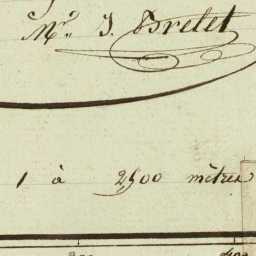 Mr. J. Bretet
1 à 2500 mètres